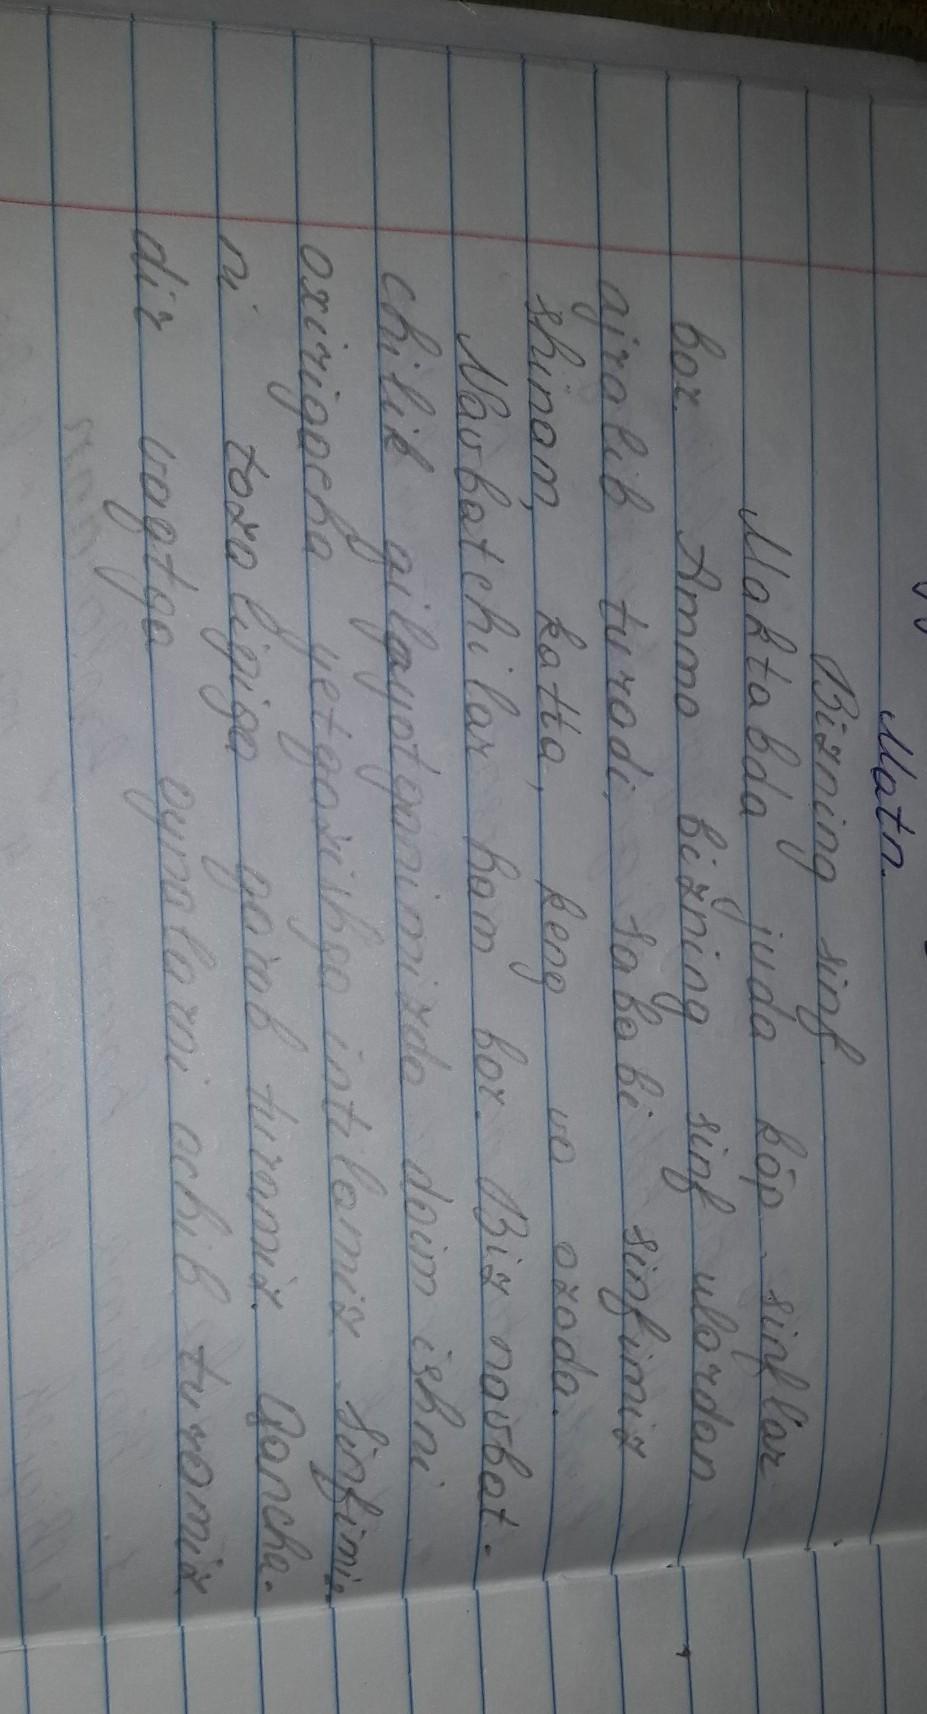 Matn.
Bizning sinf.
Maktabda juda ko'p sinflar
bor. Ammo bizning sinf ulardan
ajralib turadi, sababi sinfimiz
shinam, katta, keng va ozoda.
Navbatchilar ham bor. Biz navbat-
chilik qilayotganimizda doim ishni
oxirigacha yetgazishga intilamiz. Sinfimiz
ni tozaligiga qarab turamiz. Qancha-
dir vaqtga oynalarni ochib turamiz